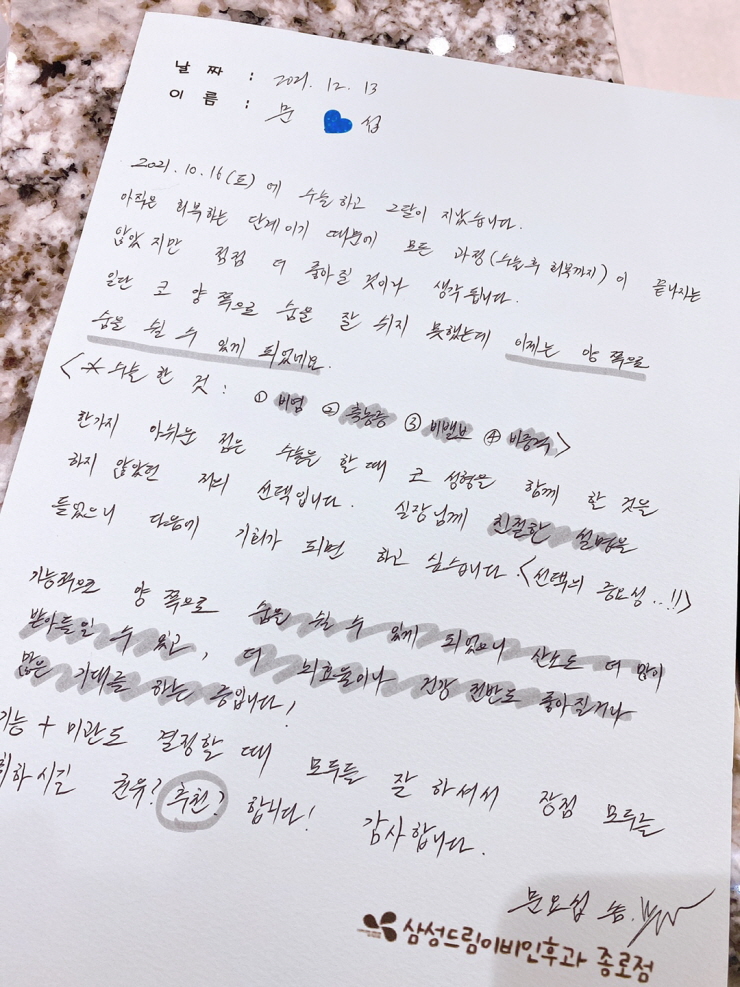 날 짜 : 2021. 12. 13
이 름 : 문 섭
2021. 10. 16(토) 에 수술 하고 2달이 지났습니다.
아직은 회복하는 단계이기 때문에 모든 과정(수술 후 회복까지) 이 끝나지는
않았지만 점점 더 좋아질 것이라 생각됩니다.
일단 코 양 쪽으로 숨을 잘 쉬지 못했는데 이제는 양 쪽으로
숨을 쉴 수 있게 되었네요.
<* 수술 한 것 : ① 비염 ② 축농증 ③ 비밸브 ④ 비중격>
한가지 아쉬운 점은 수술을 할 때 코 성형을 함께 할 것을
하지 않았던 저의 선택입니다. 실장님께 친절한 설명을
들었으니 다음에 기회가 되면 하고 싶습니다.<선택의 중요성..!!>
기능적으로 양 쪽으로 숨을 쉴 수 있게 되었으니 산소도 더 많이
받아들일 수 있고, 더 뇌효율이나 건강 전반도 좋아질거라
많은 기대를 하는 중입니다!
기능 + 미관도 결정할 때 모두를 잘 하셔서 장점 모두를
취하시길 권유? 추천? 합니다! 감사합니다.
문요섭 씀.
삼성드림이비인후과 종로점